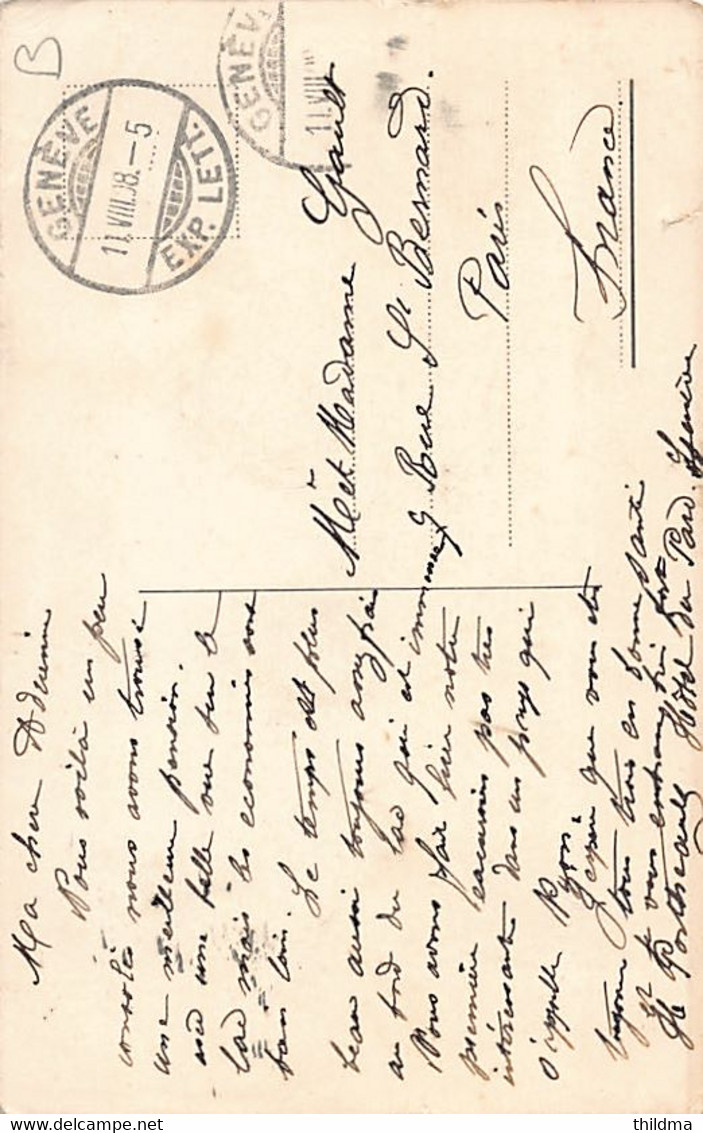 B
GENÈVE
11.VIII.08.-5
EXP. LETT.
GENÈV
11.VIII
Mr et Madame Gault
9 Rue St Bernard.
Paris
France
Ma chère
Nous voilà un peu
consolés nous avons trouvé
une meilleure pension.
avec une belle vue sur le
lac mais les économies sont
bien loin. Le temps est plus
beau aussi toujours assez frais
au bord du lac qui est immense
Nous avons fait hier notre
première excursion pas très
intéressante dans un pays qui
s'appelle Nyon.
J'espère que vous êtes
toujours tous trois en bonne santé
et vous
Hôtel du Parc. Genève
thildma